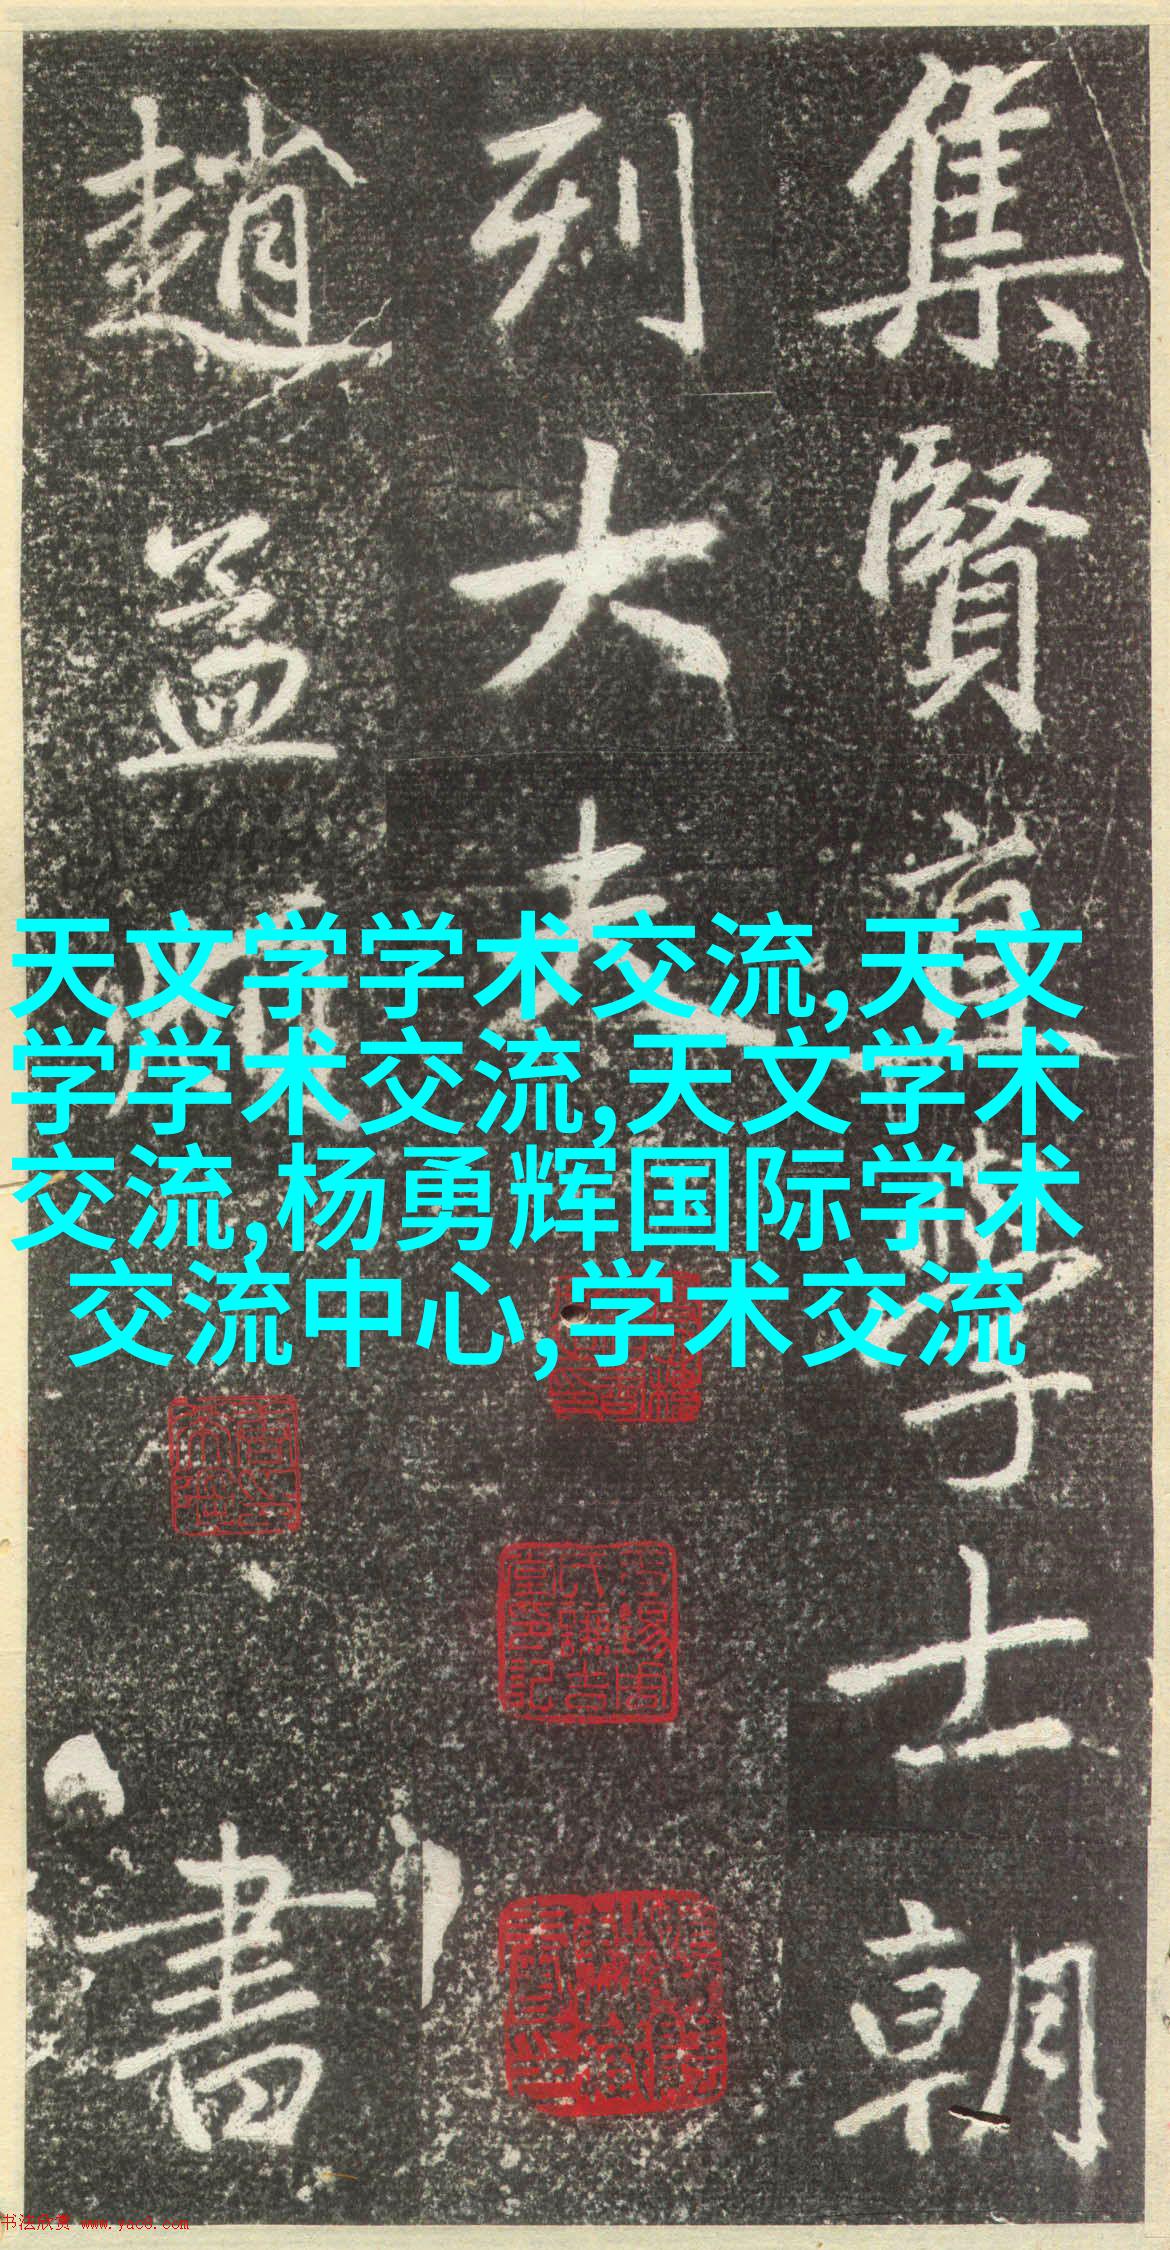 集賢直學士朝
列大夫
趙孟頫書
天文学学术交流,天文
学学术交流,天文学术
交流,杨勇辉国际学术
交流中心,学术交流
书法欣赏 www.yac8.com